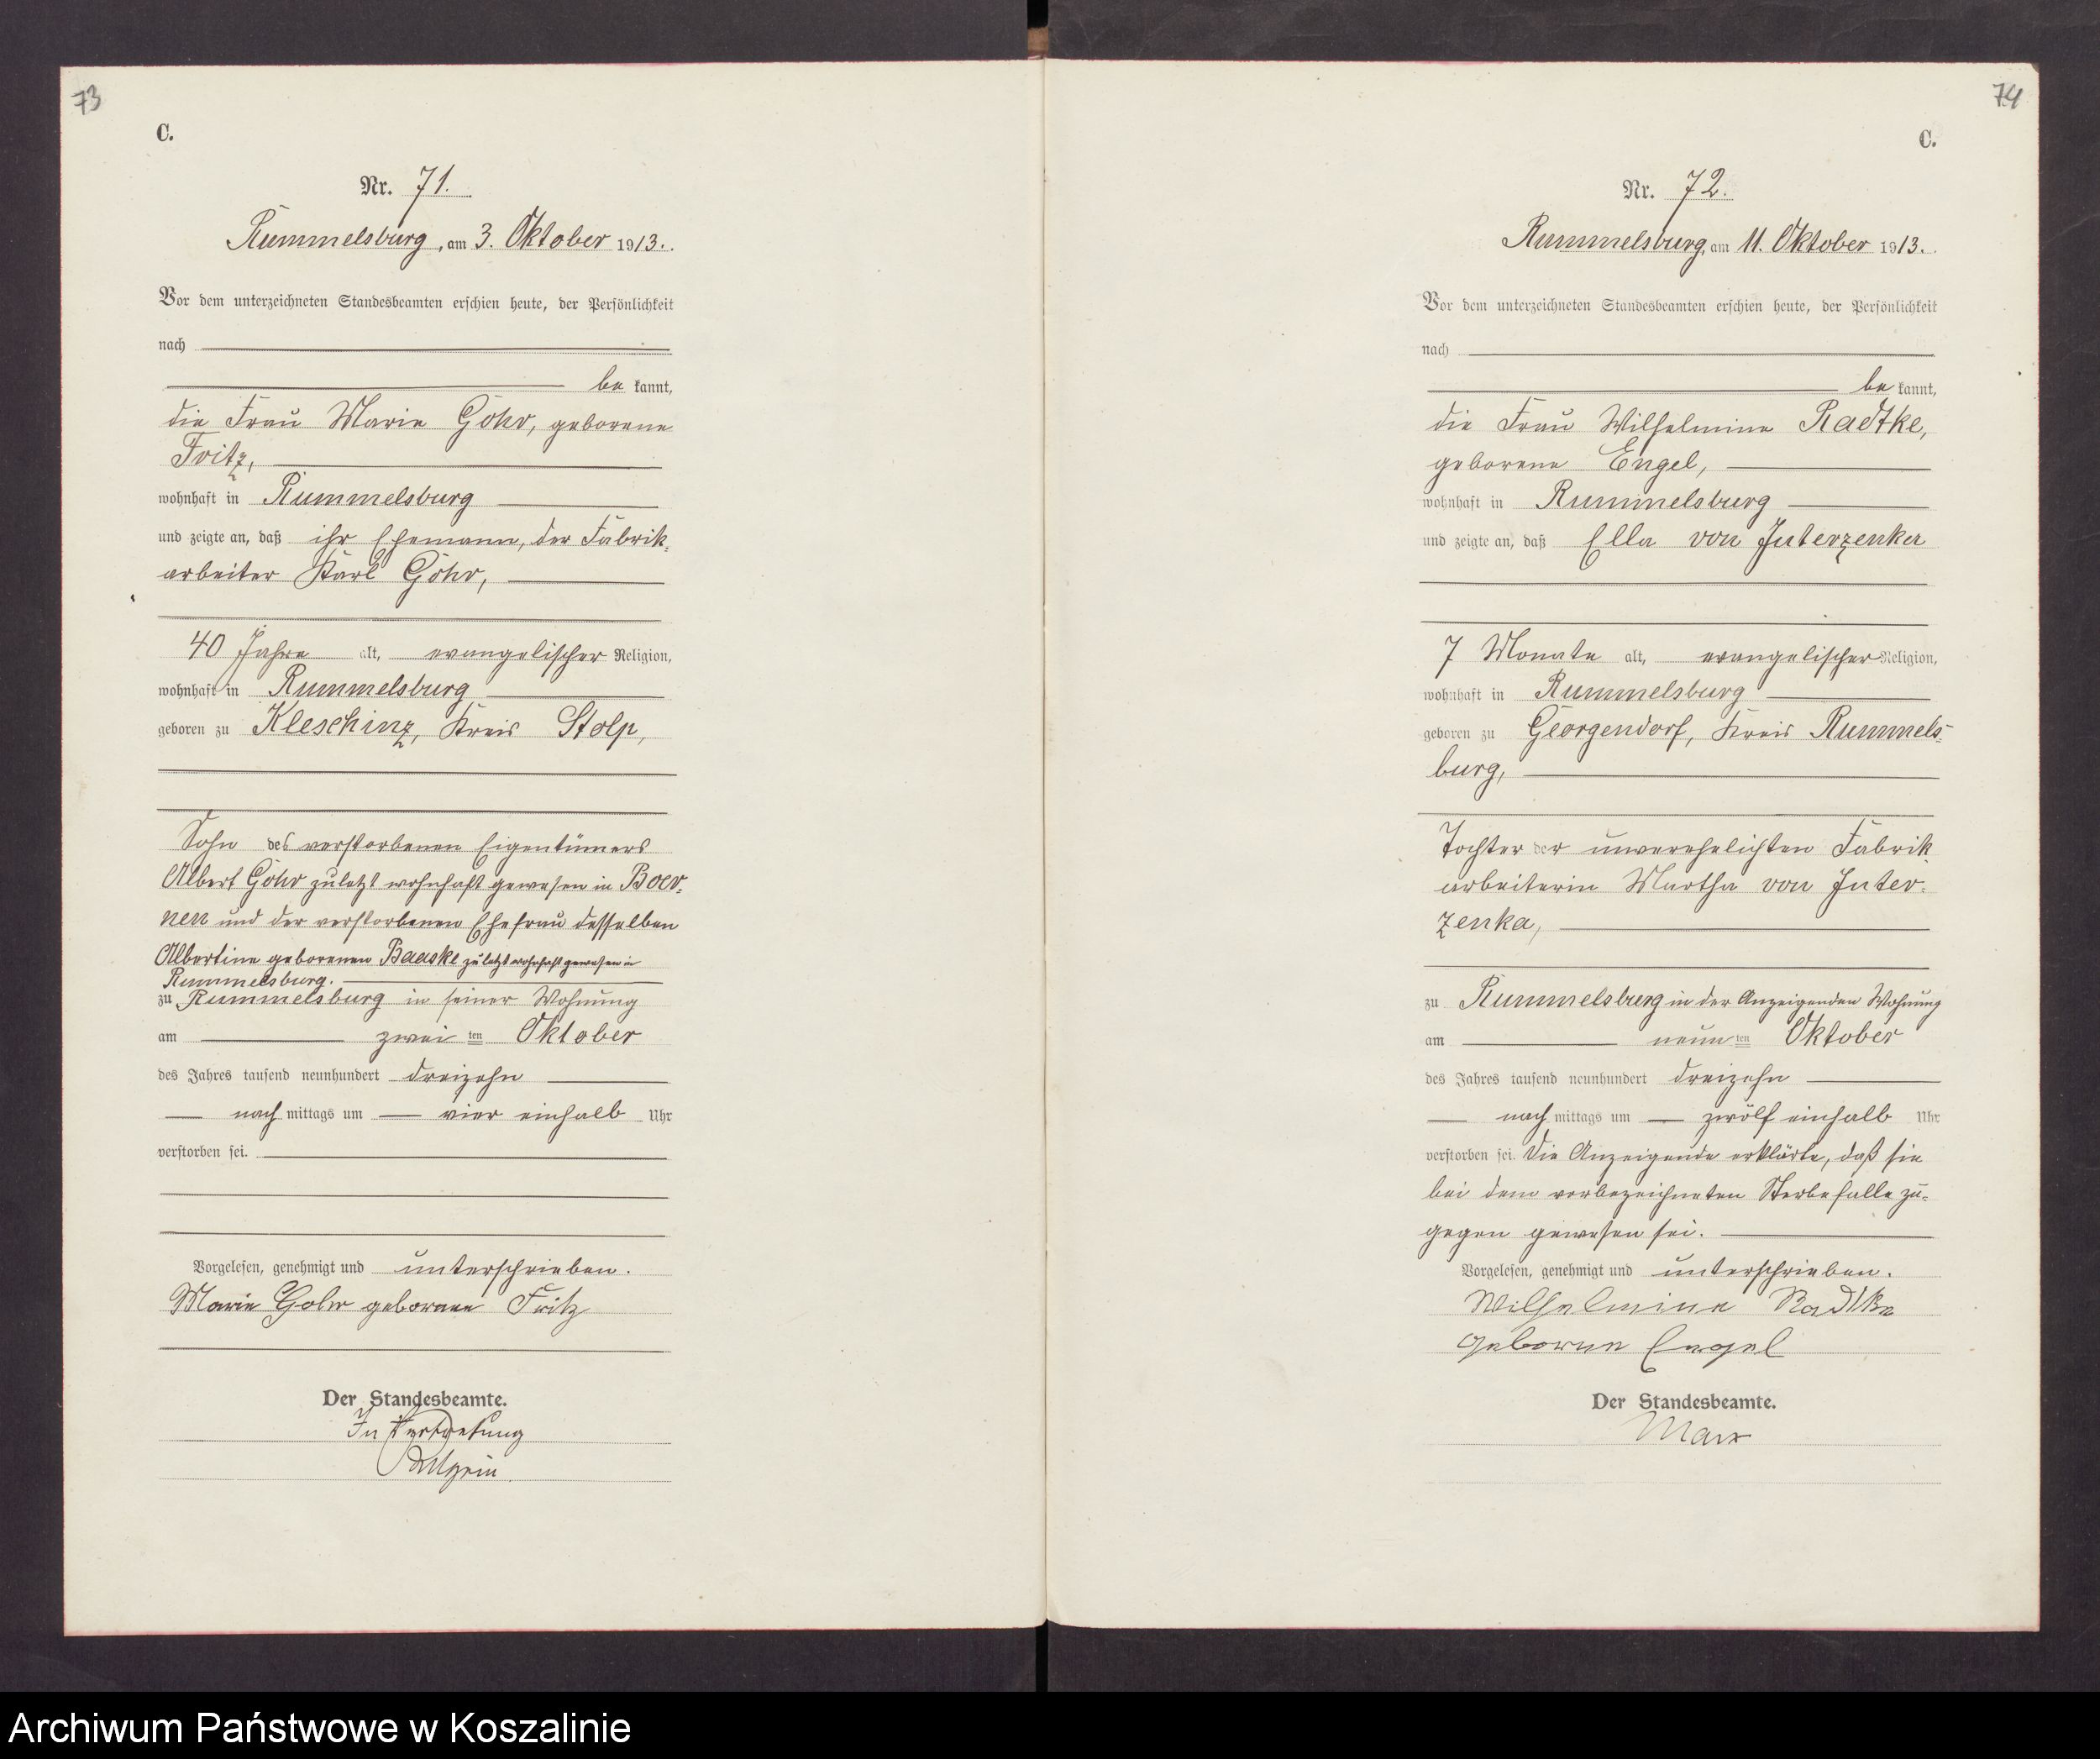 73
C.
Nr. 71.
Rummelsburg, am 3. Oktober 1913.
Vor dem unterzeichneten Standesbeamten erschien heute, der Persönlichkeit
nach
be kannt,
die Frau Marie Gohr, geborene
Fritz,
wohnhaft in Rummelsburg
und zeigte an, daß ihr Ehemann, der Fabrik-
arbeiter Karl Gohr,
40 Jahre alt, evangelischer Religion,
wohnhaft in Rummelsburg
geboren zu Kleschinz, Kreis Stolp,
Sohn des verstorbenen Eigentümers
Albert Gohr zuletzt wohnhaft gewesen in Boer-
nen und der verstorbenen Ehefrau desselben
Albertine geborenen Baaske zuletzt wohnhaft gewesen in
Rummelsburg.
zu Rummelsburg in seiner Wohnung
am zwei ten Oktober
des Jahres tausend neunhundert dreizehn
nach mittags um vier einhalb Uhr
verstorben sei.
Vorgelesen, genehmigt und unterschrieben.
Marie Gohr geborene Fritz
Der Standesbeamte.
In Vertretung
74
C.
Nr. 72.
Rummelsburg, am 11. Oktober 1913.
Vor dem unterzeichneten Standesbeamten erschien heute, der Persönlichkeit
nach
be kannt,
die Frau Wilhelmine Radtke,
geborene Engel,
wohnhaft in Rummelsburg
und zeigte an, daß Ella von Juterzenka
7 Monate alt, evangelischer Religion,
wohnhaft in Rummelsburg
geboren zu Georgendorf, Kreis Rummels-
burg,
Tochter der unverehelichten Fabrik-
arbeiterin Martha von Juter-
zenka,
zu Rummelsburg in der Anzeigenden Wohnung
am neun ten Oktober
des Jahres tausend neunhundert dreizehn
nach mittags um zwölf einhalb Uhr
verstorben sei. Die Anzeigende erklärte, daß sie
bei dem vorbezeichneten Sterbefalle zu-
gegen gewesen sei.
Vorgelesen, genehmigt und unterschrieben.
Wilhelmine Radtke
geborne Engel
Der Standesbeamte.
Marx
Archiwum Państwowe w Koszalinie